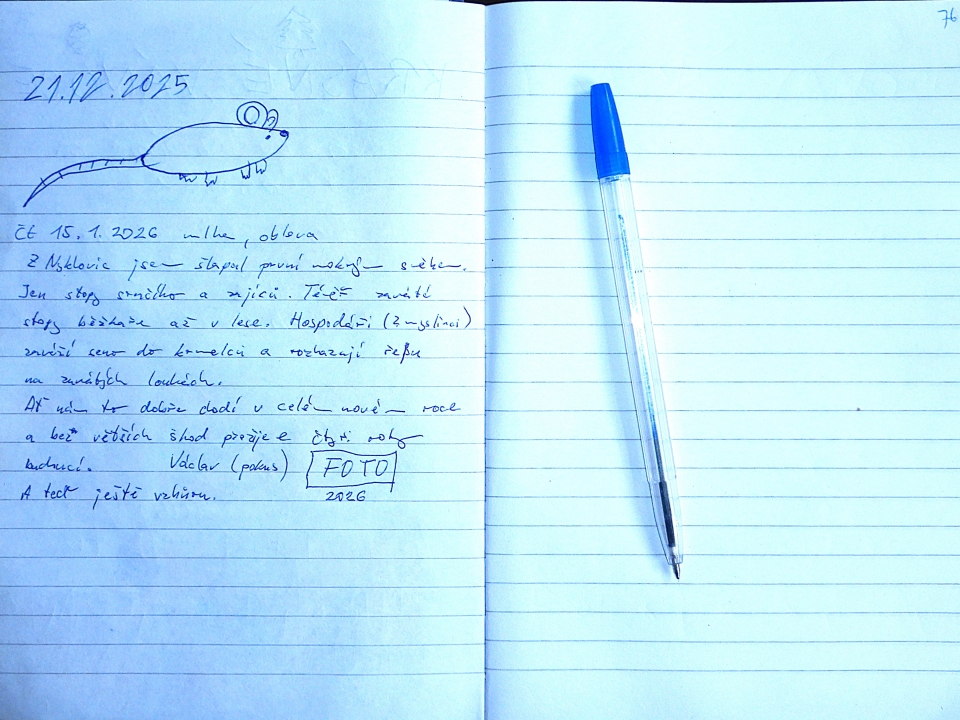 76
21.12.2025
čt 15.1.2026 mlha, obleva
Z Nyklovic jsem šlapal první mokrým sněhem.
Jen stopy srnčího a zajíců. Téměř zaváté
stopy běžkaře až v lese. Hospodáři (i myslivci)
zaváží seno do krmelců a rozhazují řepu
na zavátých loukách.
Ať nám to dobře dodí v celém novém roce
a bez větších škod přežijeme čtyři roky
budoucí. Václav (pokus) FOTO
A teď ještě vzhůru. 2026